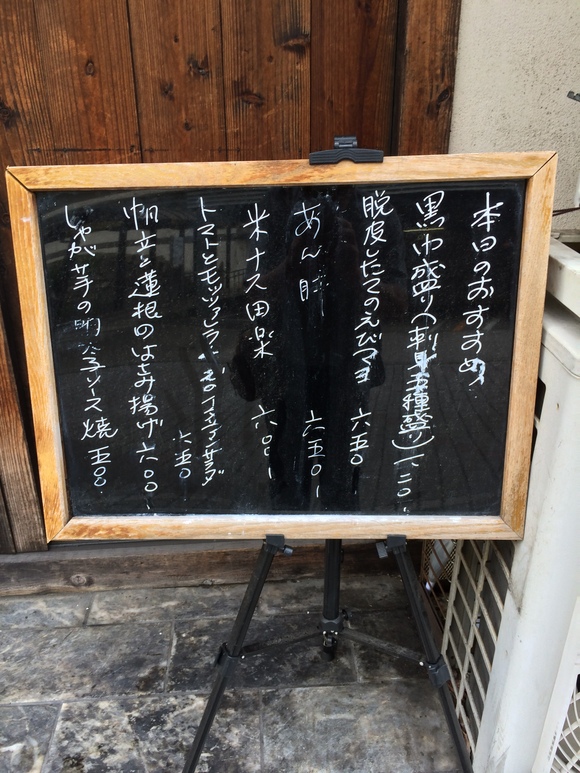 本日のおすすめ
黒巾盛り(刺身五種盛り)一、二〇〇.
脱皮したてのえびマヨ 六五〇
あん肝 六五〇ー
米ナス田楽 六〇〇ー
トマトとモッツァレラ サラダ 六五〇
帆立と蓮根のはさみ揚げ 六〇〇ー
じゃが芋の明太子ソース焼 五〇〇.